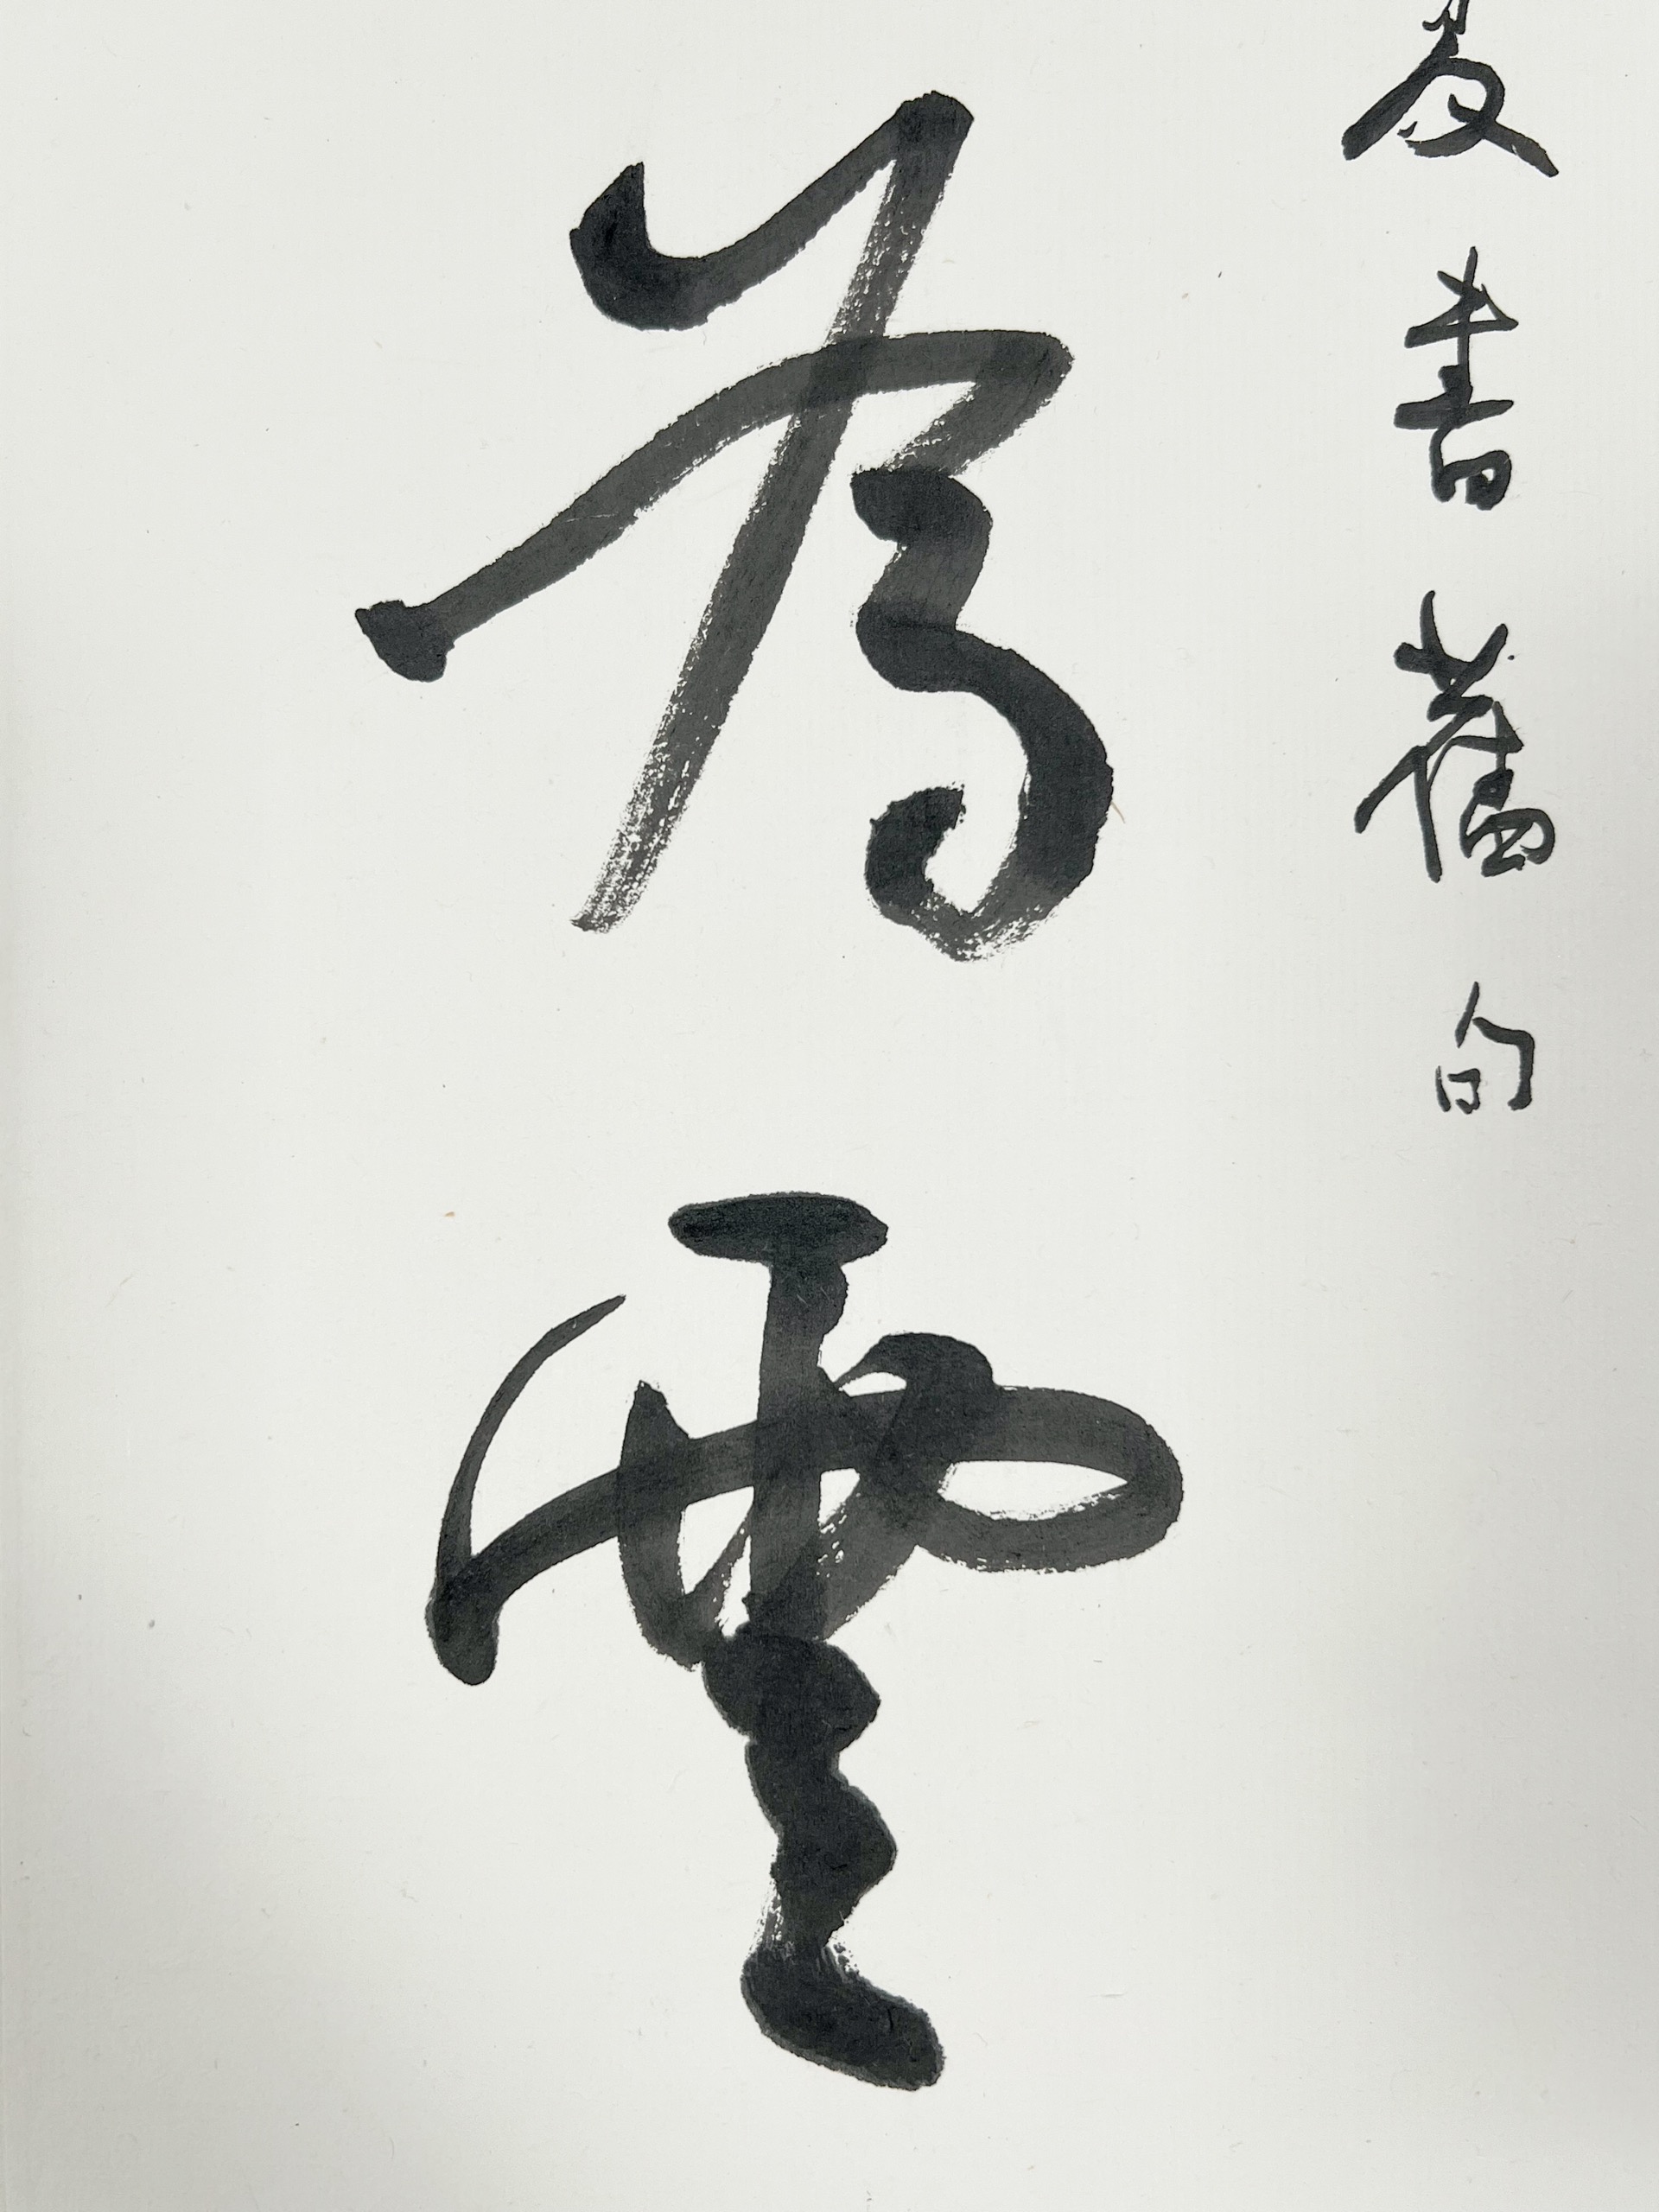 夏書舊句
為雲